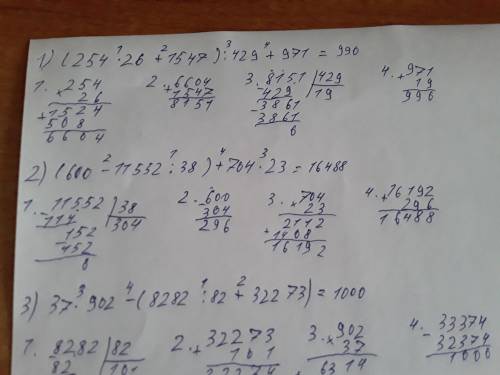 1) (254 · 26 + 1547) : 429 + 971 = 990
1. 254
× 26
+ 1524
508
6604
2. + 6604
1547
8151
3. - 8151 | 429
429 | 19
- 3861
3861
0
4. + 971
19
990
2) (600 - 11552 : 38) + 704 · 23 = 16488
1. - 11552 | 38
114 | 304
- 152
152
0
2. - 600
304
296
3. × 704
23
+ 2112
1408
16192
4. + 16192
296
16488
3) 37 · 902 - (8282 : 82 + 32273) = 1000
1. 8282 | 82
82 | 101
2. + 32273
101
32374
3. × 902
37
6314
4. - 33374
32374
1000